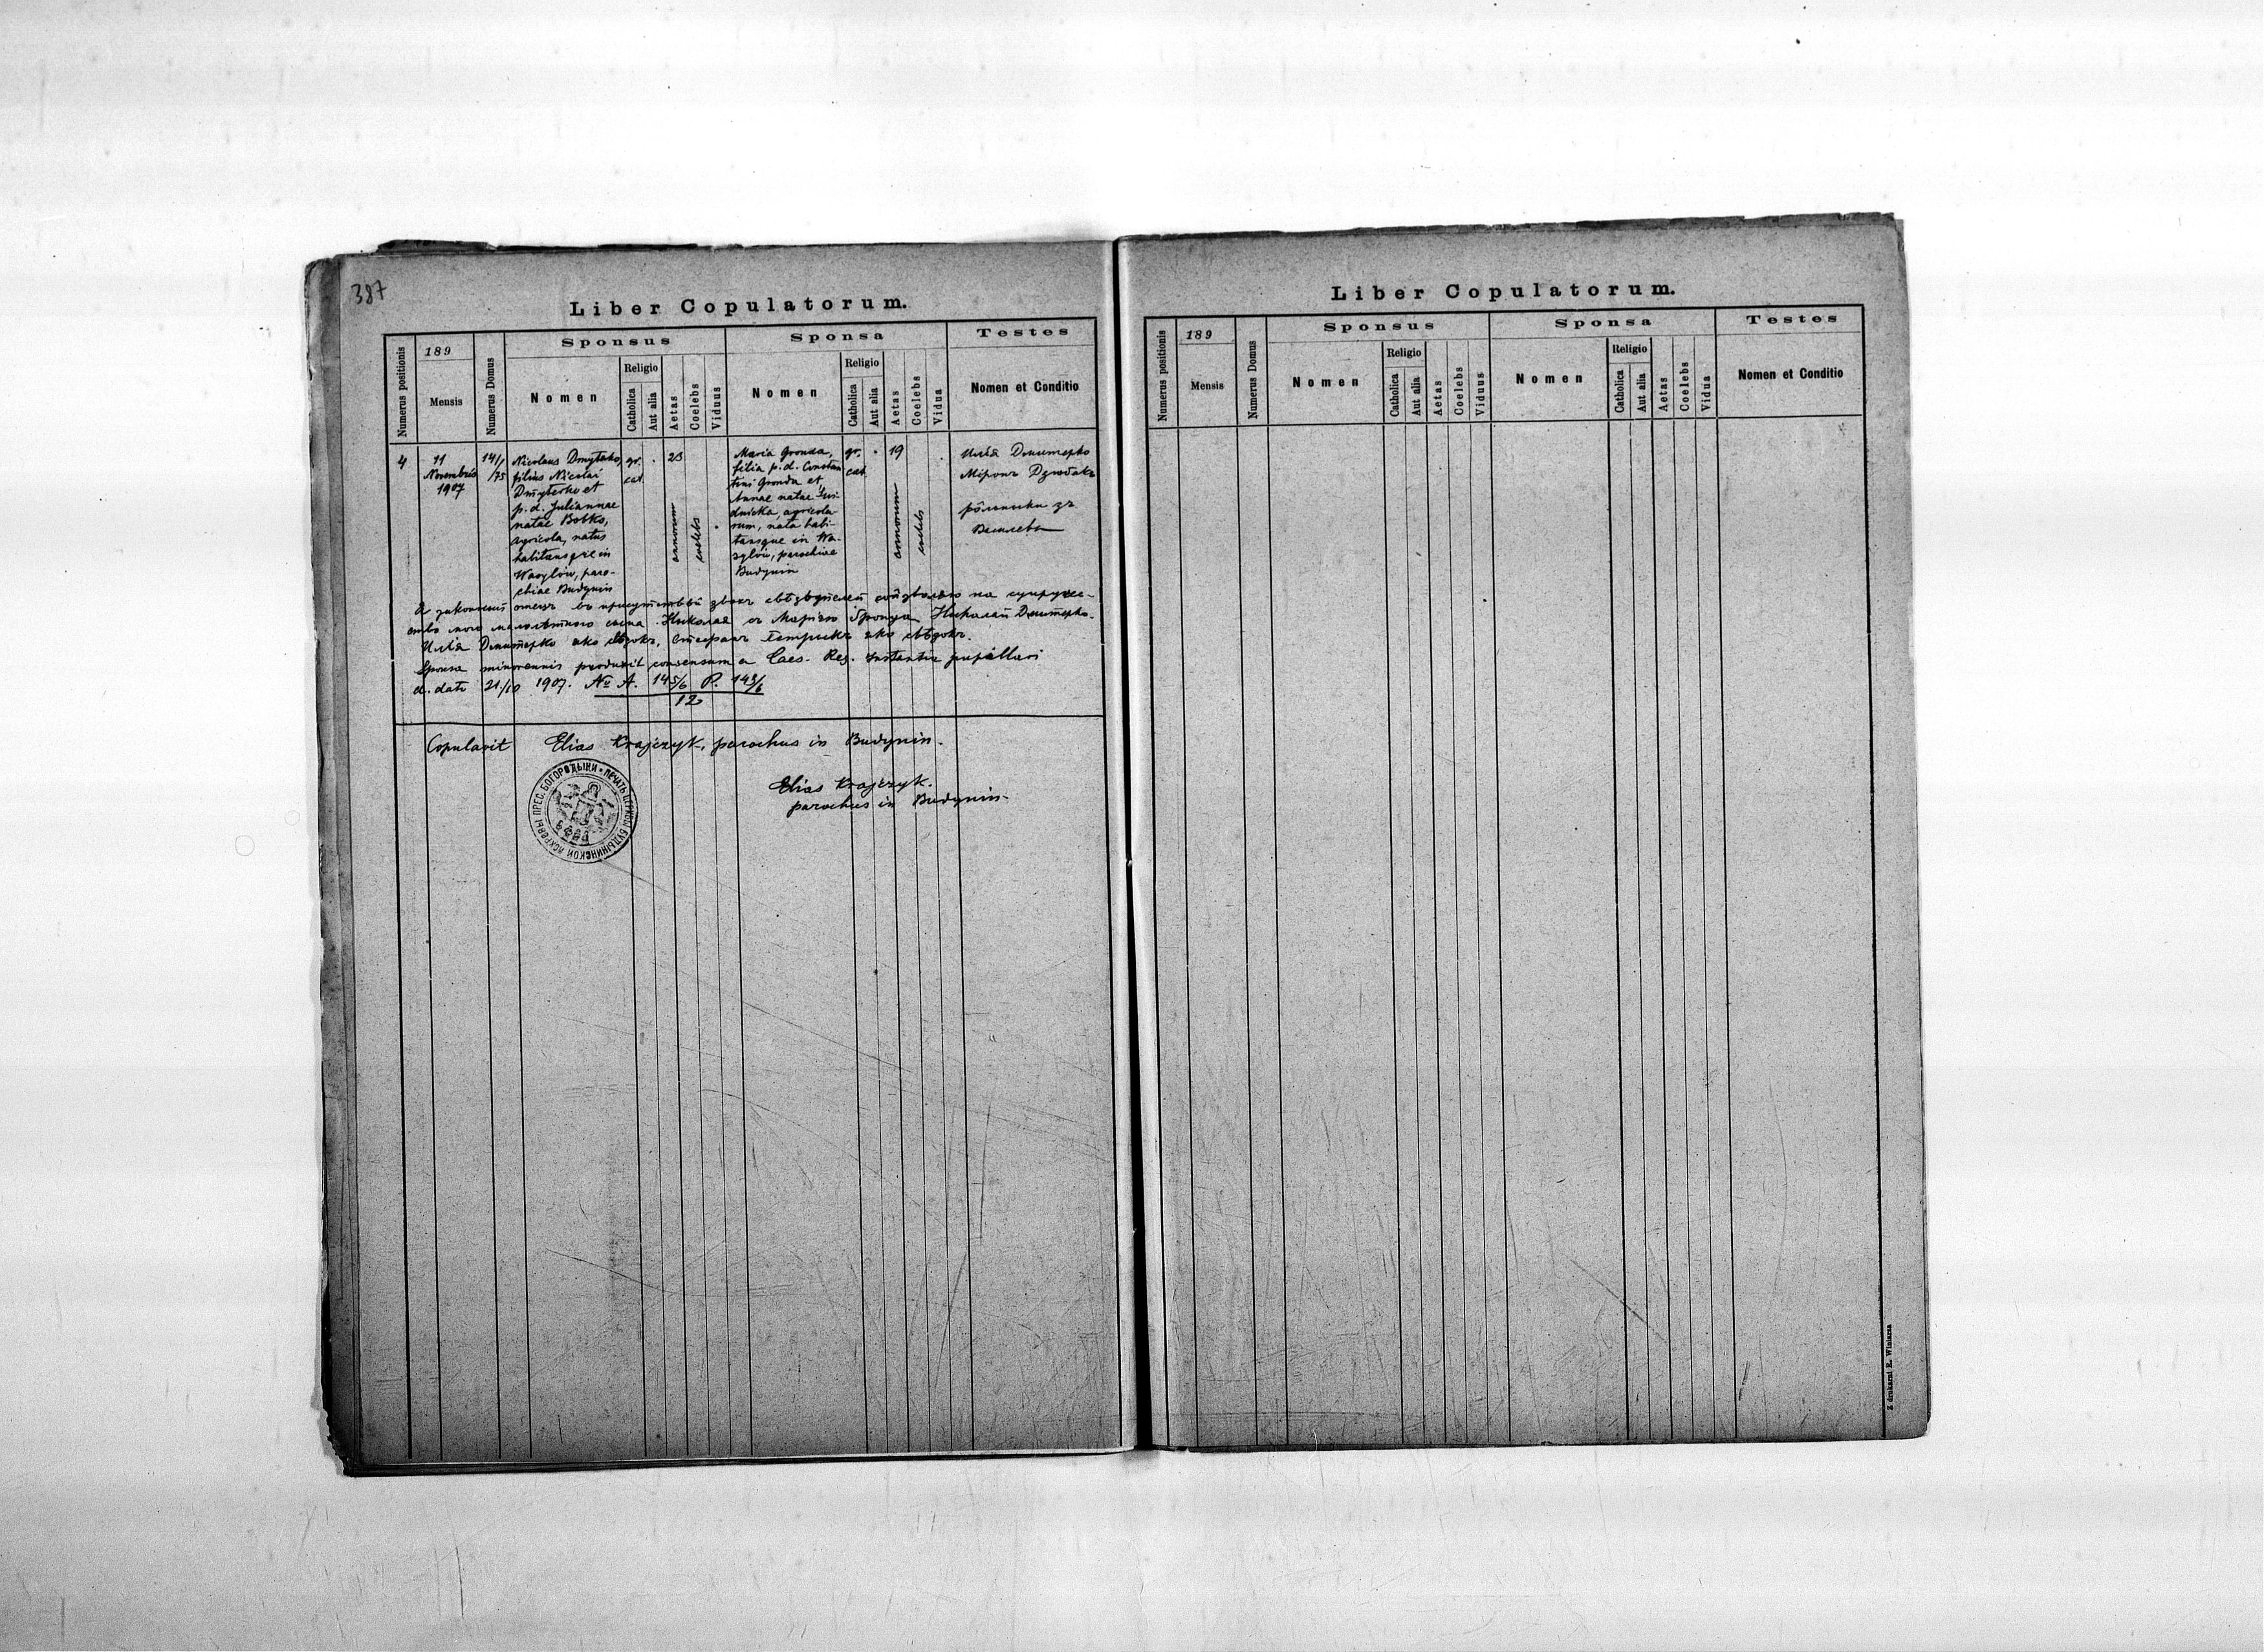 387
Liber Copulatorum.
Numerus positionis
189
Mensis
Numerus Domus
Sponsus
Nomen
Religio
Catholica
Aut alia
Aetas
Coelebs
Viduus
Sponsa
Nomen
Religio
Catholica
Aut alia
Aetas
Coelebs
Vidua
Testes
Nomen et Conditio
4
11
Novembris
1907
14/1
/75
Nicolaus Dmyterko,
filius Nicolai
Dmyterko et
p. d. Juliannae
natae Botko,
agricola, natus
habitansque in
Wasylów, paro-
chiae Budynin
gr.
cat.
23
annorum
coelebs
Maria Gronda,
filia p. d. Constan
tini Gronda et
Annae natae
agricola-
rum, nata habi-
tansque in Wa-
sylów, parochiae
Budynin
gr.
cat
19
annorum
coelebs
Илія Дмитерко
Міронъ Дзюбакъ
рôльники зъ
Василева
Я законный отець въ присутствіи двохъ свѣдѣтелей соизволяю на супруже-
ство мого малолѣтного сына Николая съ Маріею Гронда Николай Дмитерко.
Илія Дмитерко яко свѣдокъ, Стефанъ яко свѣдокъ.
Sponsa minorennis produxit consensum a Caes. Reg. Instantia pupillari
d. dato 21/10 1907. No A. 145/6 P. 143/6
12
Copulavit Elias Krajczyk, parochus in Budynin.
Elias Krajczyk.
parochus in Budynin.
ПЕЧАТЬ ЦЕРКВИ БУДЫНИНСКОЙ ПОКРОВЫ ПРЕС. БОГОРОДЫЦИ
Liber Copulatorum.
Numerus positionis
189
Mensis
Numerus Domus
Sponsus
Nomen
Religio
Catholica
Aut alia
Aetas
Coelebs
Viduus
Sponsa
Nomen
Religio
Catholica
Aut alia
Aetas
Coelebs
Vidua
Testes
Nomen et Conditio
Z drukarni E. Winiarza